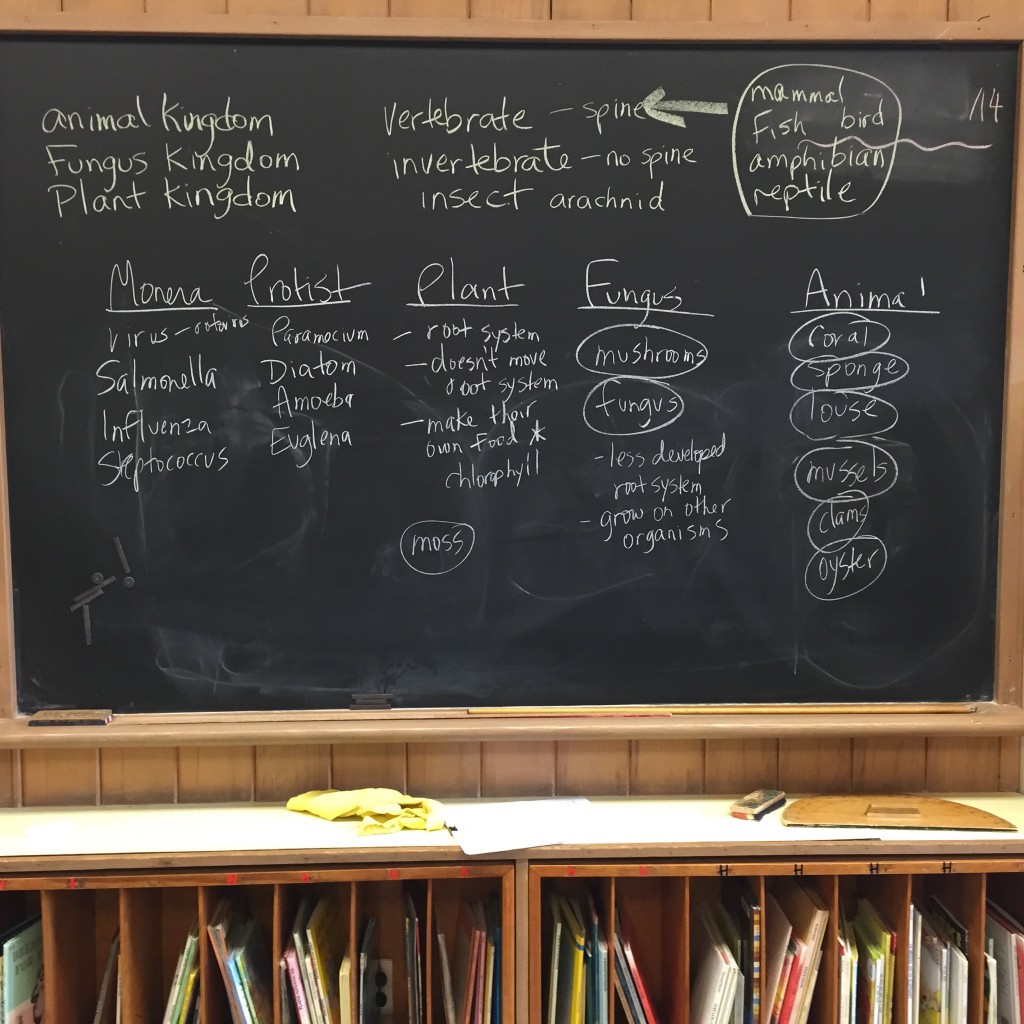 animal Kingdom
Fungus Kingdom
Plant Kingdom
vertebrate - spine
invertebrate - no spine
insect arachnid
mammal
Fish bird
amphibian
reptile
/14
Monera
Virus - rotavirus
Salmonella
Influenza
Steptococcus
Protist
Paramecium
Diatom
Amoeba
Euglena
Plant
- root system
- doesn't move
root system
- make their
own food *
chlorophyll
moss
Fungus
mushrooms
fungus
- less developed
root system
- grow on other
organisms
Animal
coral
sponge
louse
mussels
clams
oyster
H H H H